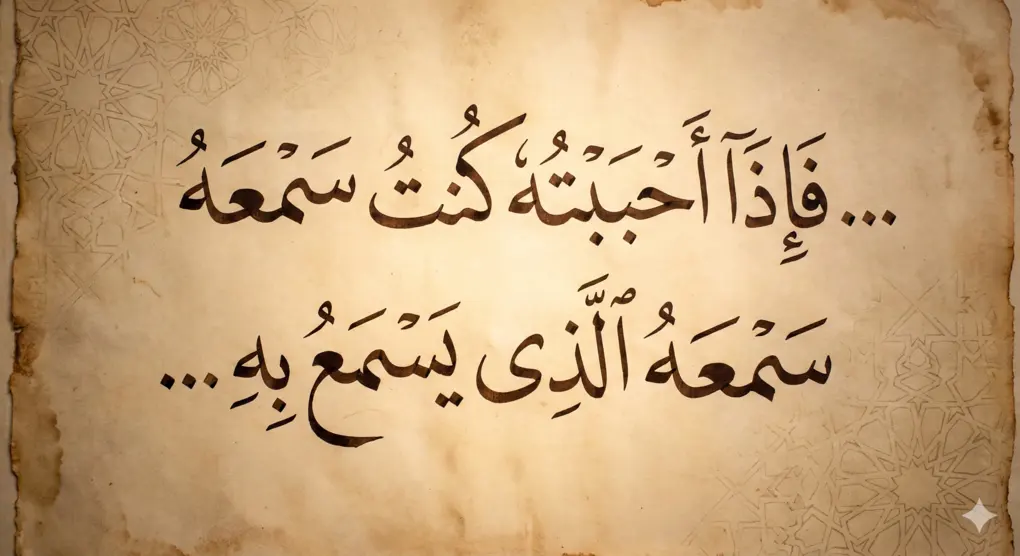 ... فَإِذَآ أَحْبَبْتُهُۥ كُنتُ سَمْعَهُ
سَمْعَهُ ٱلَّذِى يَسْمَعُ بِهِ ...